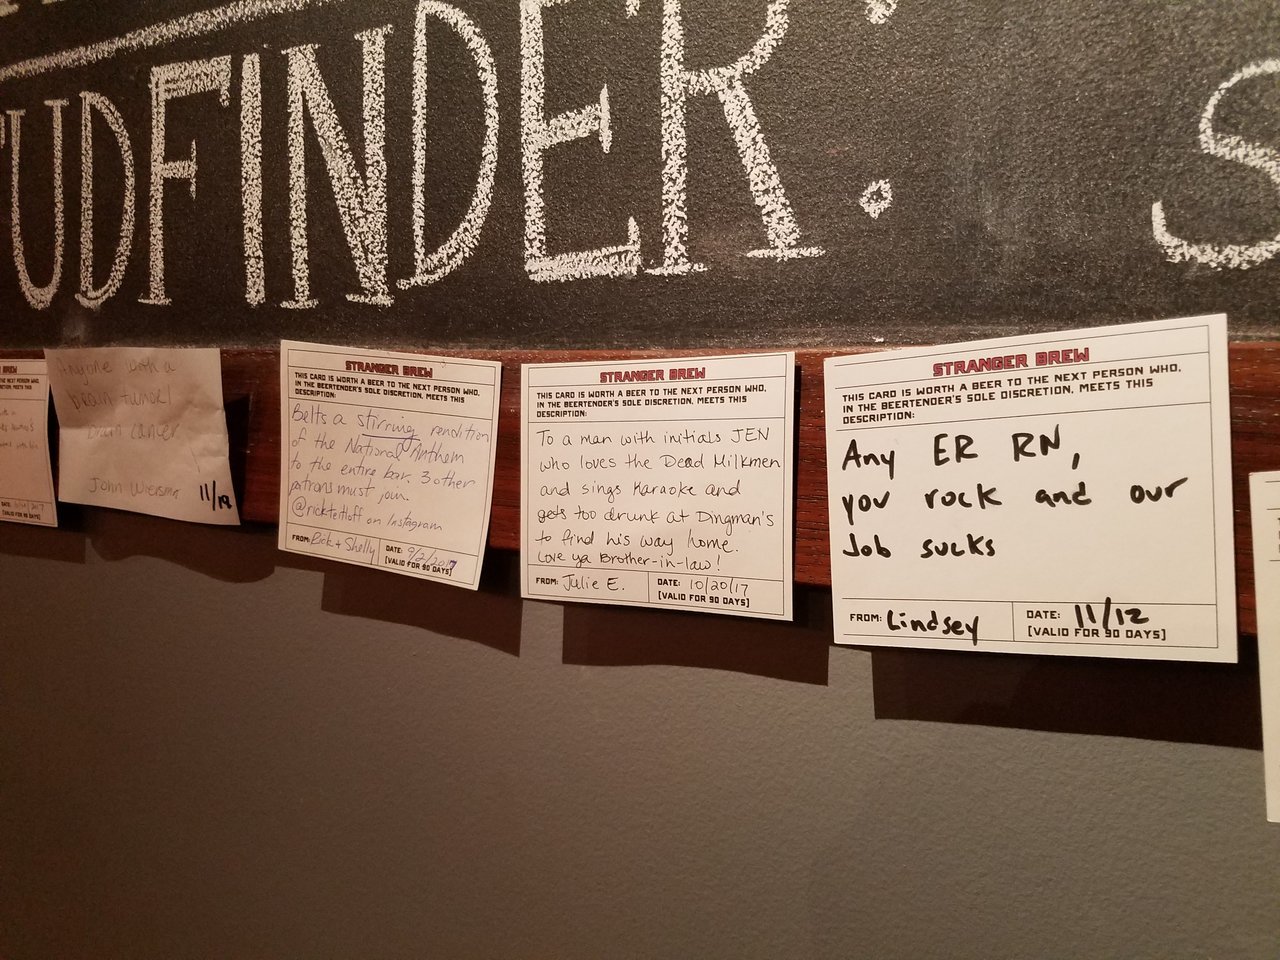 UDFINDER:
S
BREW
Anyone with a
brain tumor/
Brain cancer
John Wiersma
11/12
STRANGER BREW
THIS CARD IS WORTH A BEER TO THE NEXT PERSON WHO,
IN THE BEERTENDER'S SOLE DISCRETION, MEETS THIS
DESCRIPTION:
Belts a stirring rendition
of the National Anthem
to the entire bar. 3 other
patrons must join.
on Instagram
FROM: Rick + Shelly
DATE: 9/2/2017
[VALID FOR 90 DAYS]
STRANGER BREW
THIS CARD IS WORTH A BEER TO THE NEXT PERSON WHO,
IN THE BEERTENDER'S SOLE DISCRETION, MEETS THIS
DESCRIPTION:
To a man with initials JEN
who loves the Dead Milkmen
and sings Karaoke and
gets too drunk at Dingman's
to find his way home.
Love ya Brother-in-law!
FROM: Julie E.
DATE: 10/20/17
[VALID FOR 90 DAYS]
STRANGER BREW
THIS CARD IS WORTH A BEER TO THE NEXT PERSON WHO,
IN THE BEERTENDER'S SOLE DISCRETION, MEETS THIS
DESCRIPTION:
Any ER RN,
you rock and our
Job sucks
FROM: Lindsey
DATE: 11/12
[VALID FOR 90 DAYS]